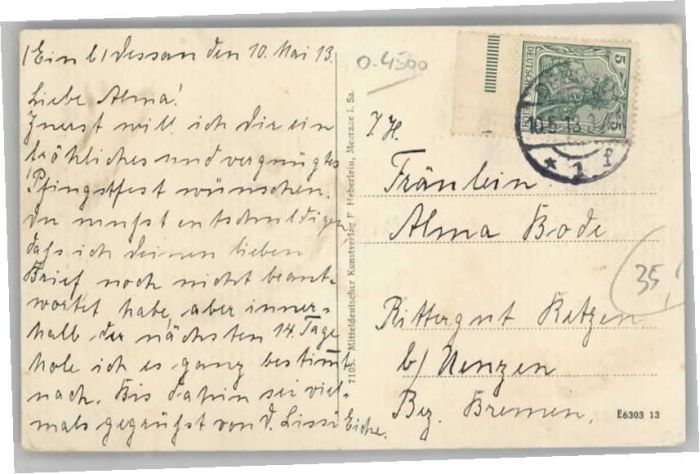 Dessau den 10. Mai 13.
Liebe Alma!
Zuerst will ich dir ein
fröhliches und vergnügtes
Pfingstfest wünschen.
Du mußt entschuldigen,
daß ich deinen lieben
Brief noch nicht beant-
wortet habe, aber inner-
halb der nächsten 14 Tage
hole ich es ganz bestimmt
nach. Bis dahin sei viel-
mals gegrüßt von d. Lissi
7105. Mitteldeutscher Kunstverlag F. Heberlein, Meerane i. Sa.
0-4500
DEUTSCHES REICH
5
10.5.13
* 1 f
Fräulein
Alma Bode
Rittergut
b/
Bez. Bremen.
35,
E6303 13